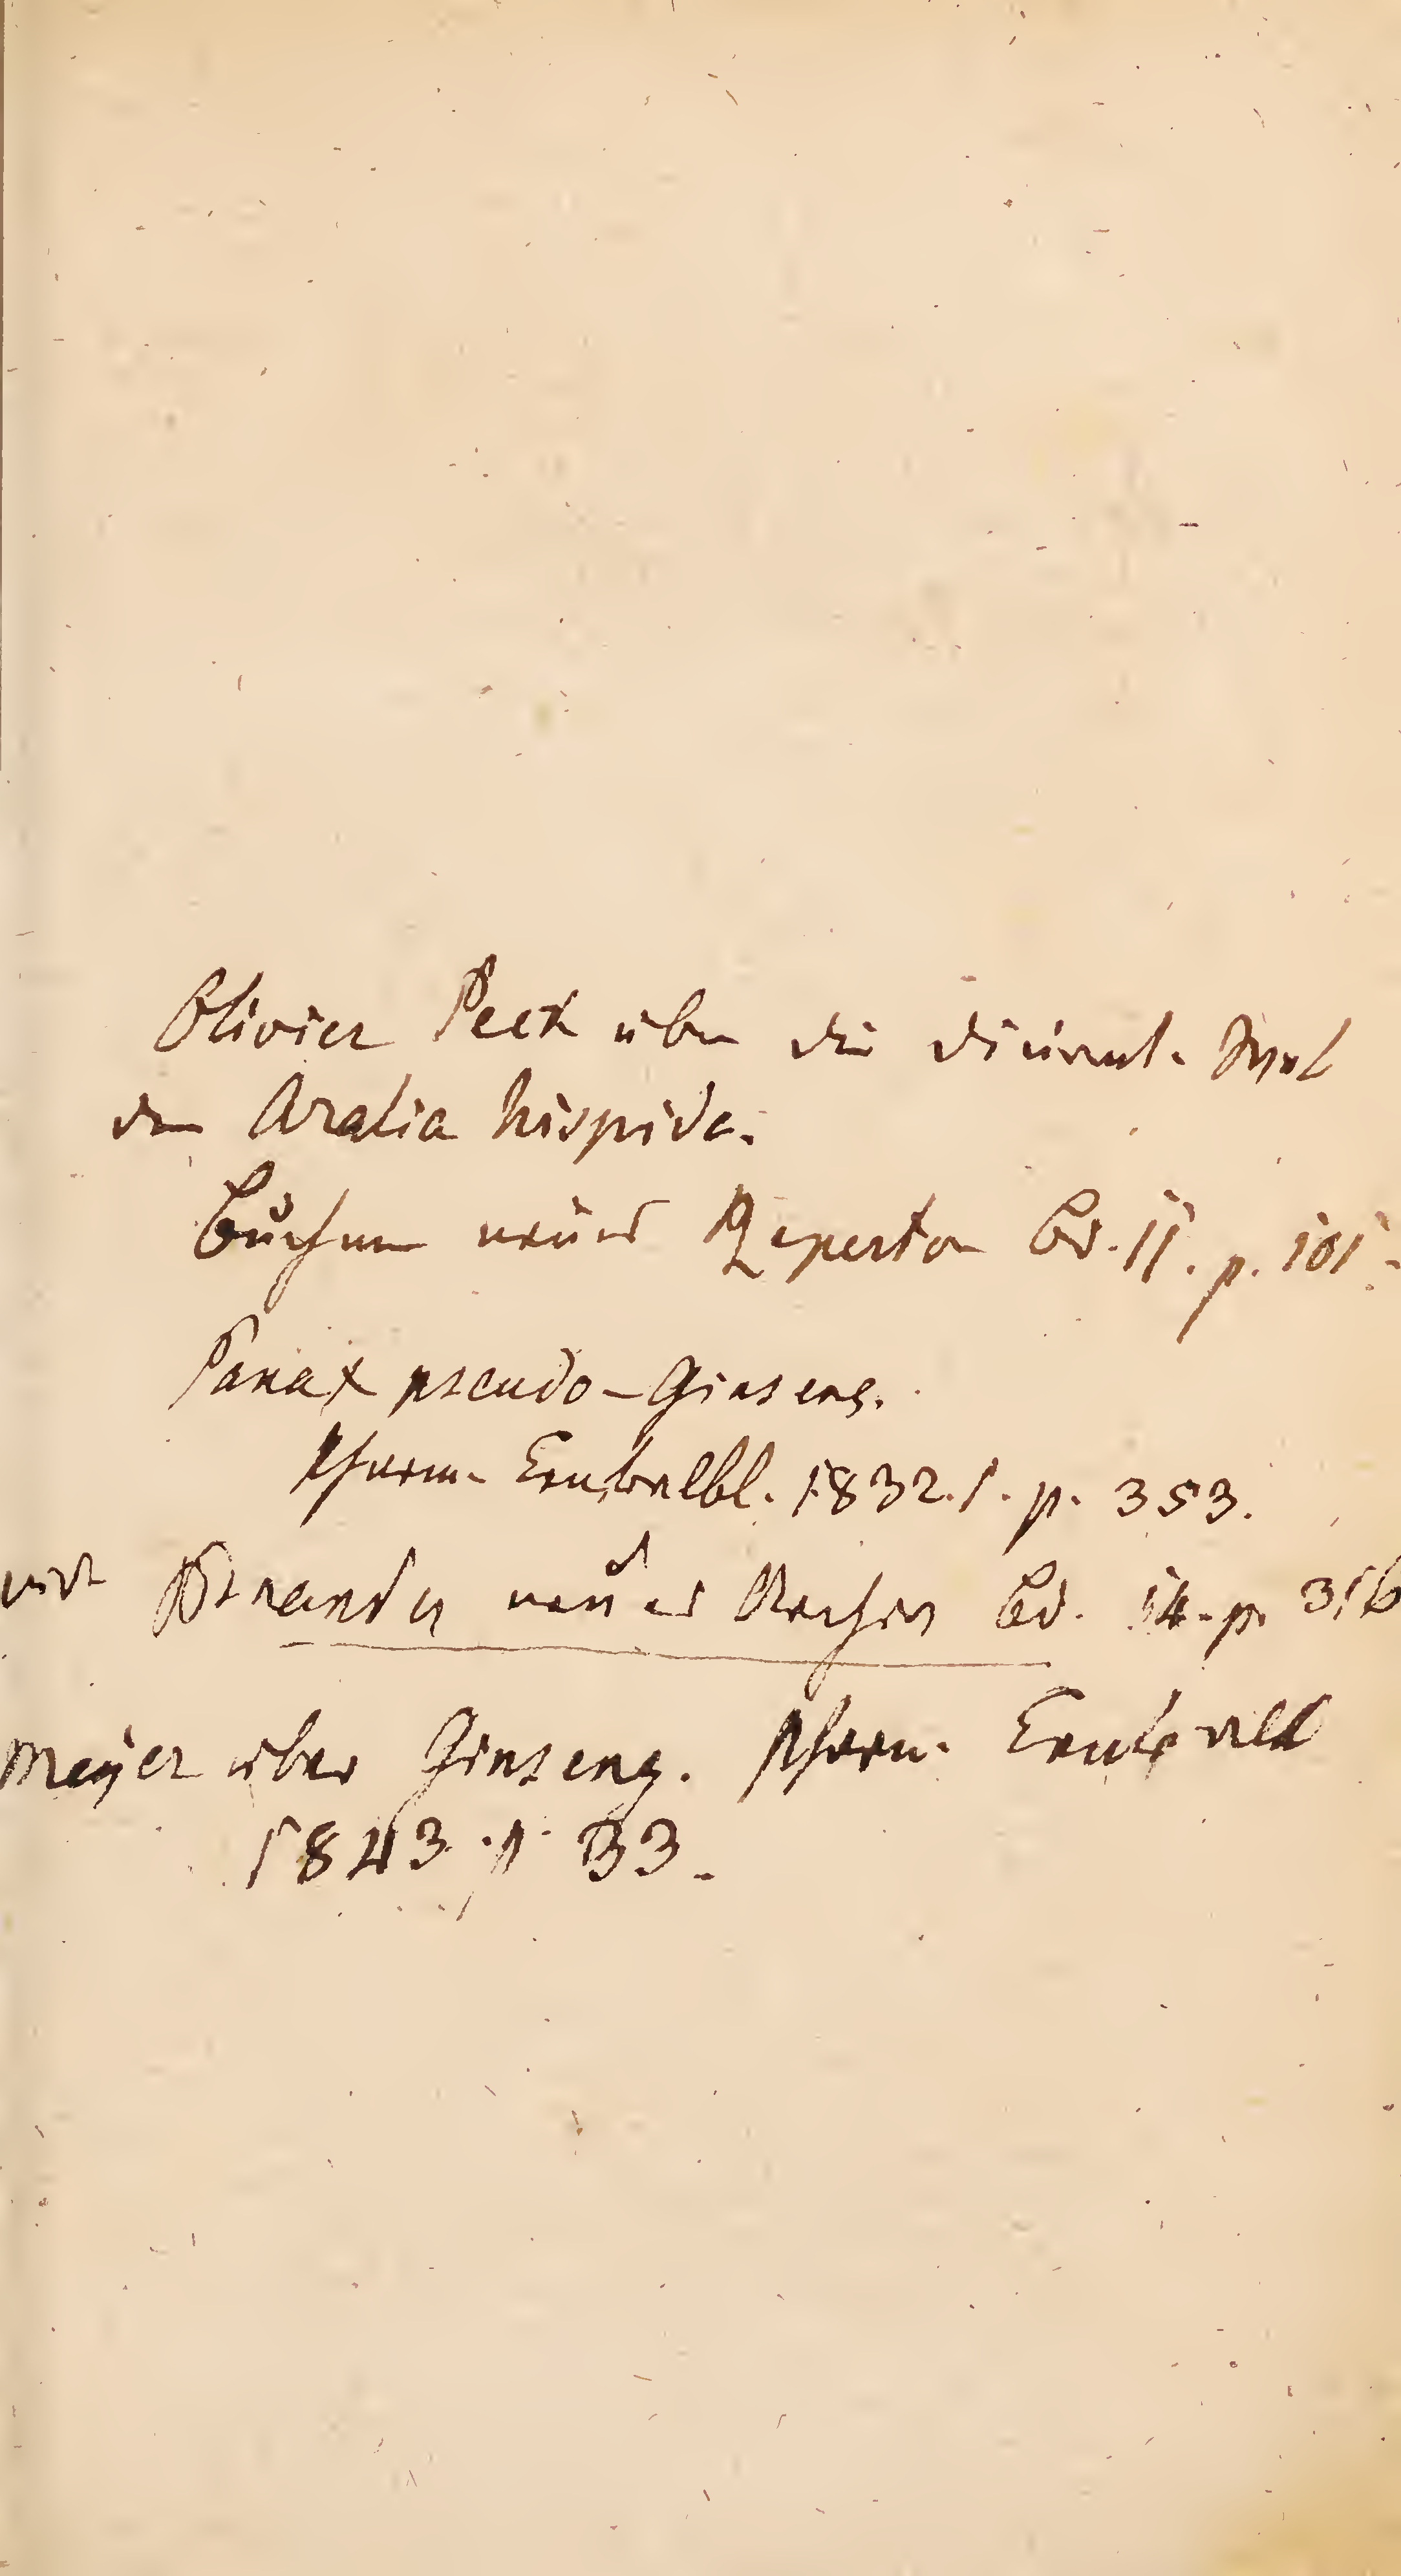 Olivier Peck über die diuret.
der Aralia hispida.
Buchner neues Reperto Bd. 11. p. 101.
Panax pseudo-Ginseng.
Pharm. Centralbl. 1832. 1. p. 353.
Brandes neues Archiv Bd. 14. p. 316
Meyer über Ginseng. Pharm. Centralbl
1843. p. 33.